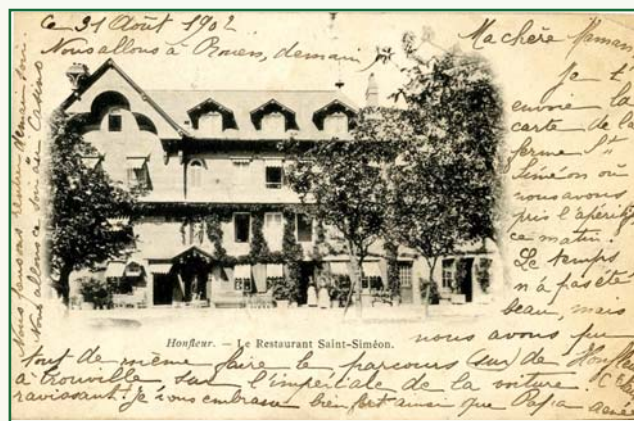 Ce 31 Août 1902
Nous allons à Rouen, demain
Ma chère Maman,
Je t'
envoie la
carte de la
ferme St
Siméon où
nous avons
pris l'apéritif
ce matin.
Le temps
n'a pas été
beau, mais
nous avons pu
tout de même faire le parcours (sur) de Honfleur
à Trouville sur l'impériale de la voiture. C'est
ravissant. Je vous embrasse bien fort ainsi que Papa
Nous pensons rentrer demain soir.
Nous allons ce soir au Casino
Honfleur. — Le Restaurant Saint-Siméon.